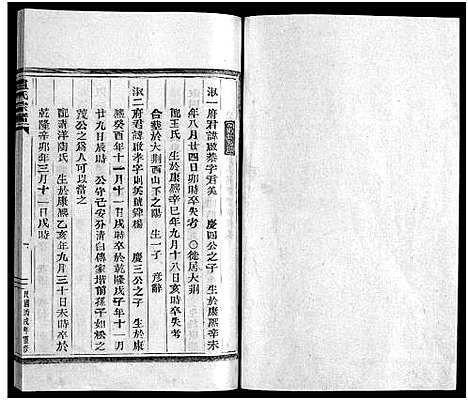 淑一府君諱啟恭字君美　慶四公之子　生於康熙辛未
年八月廿四日卯時卒失考　〇徙居大荆
配王氏　生於康熙辛巳年九月十八日亥時卒失考
合葬於大荆西山下之陽　生一子　彥辭
淑二府君諱啟孝字則英號舜揚　慶三公之子　生於康
熙癸酉年十一月十一日寅時卒於乾隆戊子年十一月
廿九日辰時　公守己安分清白傳家堦前孫子如松之
茂公之為人可以當之
配清洋陶氏　生於康熙乙亥年九月三十日未時卒於
乾隆辛卯年三月十一日戌時